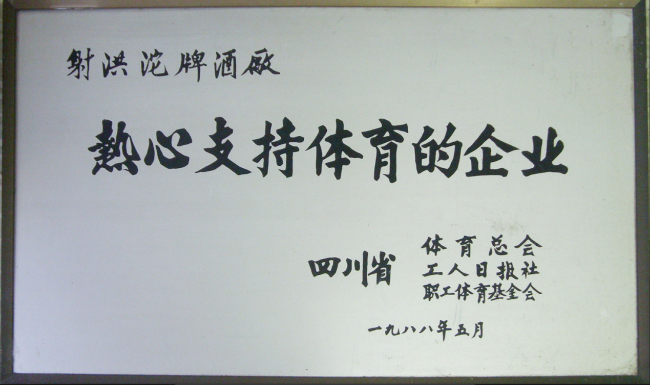 射洪沱牌酒廠
熱心支持体育的企业
四川省
体育总会
工人日报社
职工体育基金会
一九八八年五月